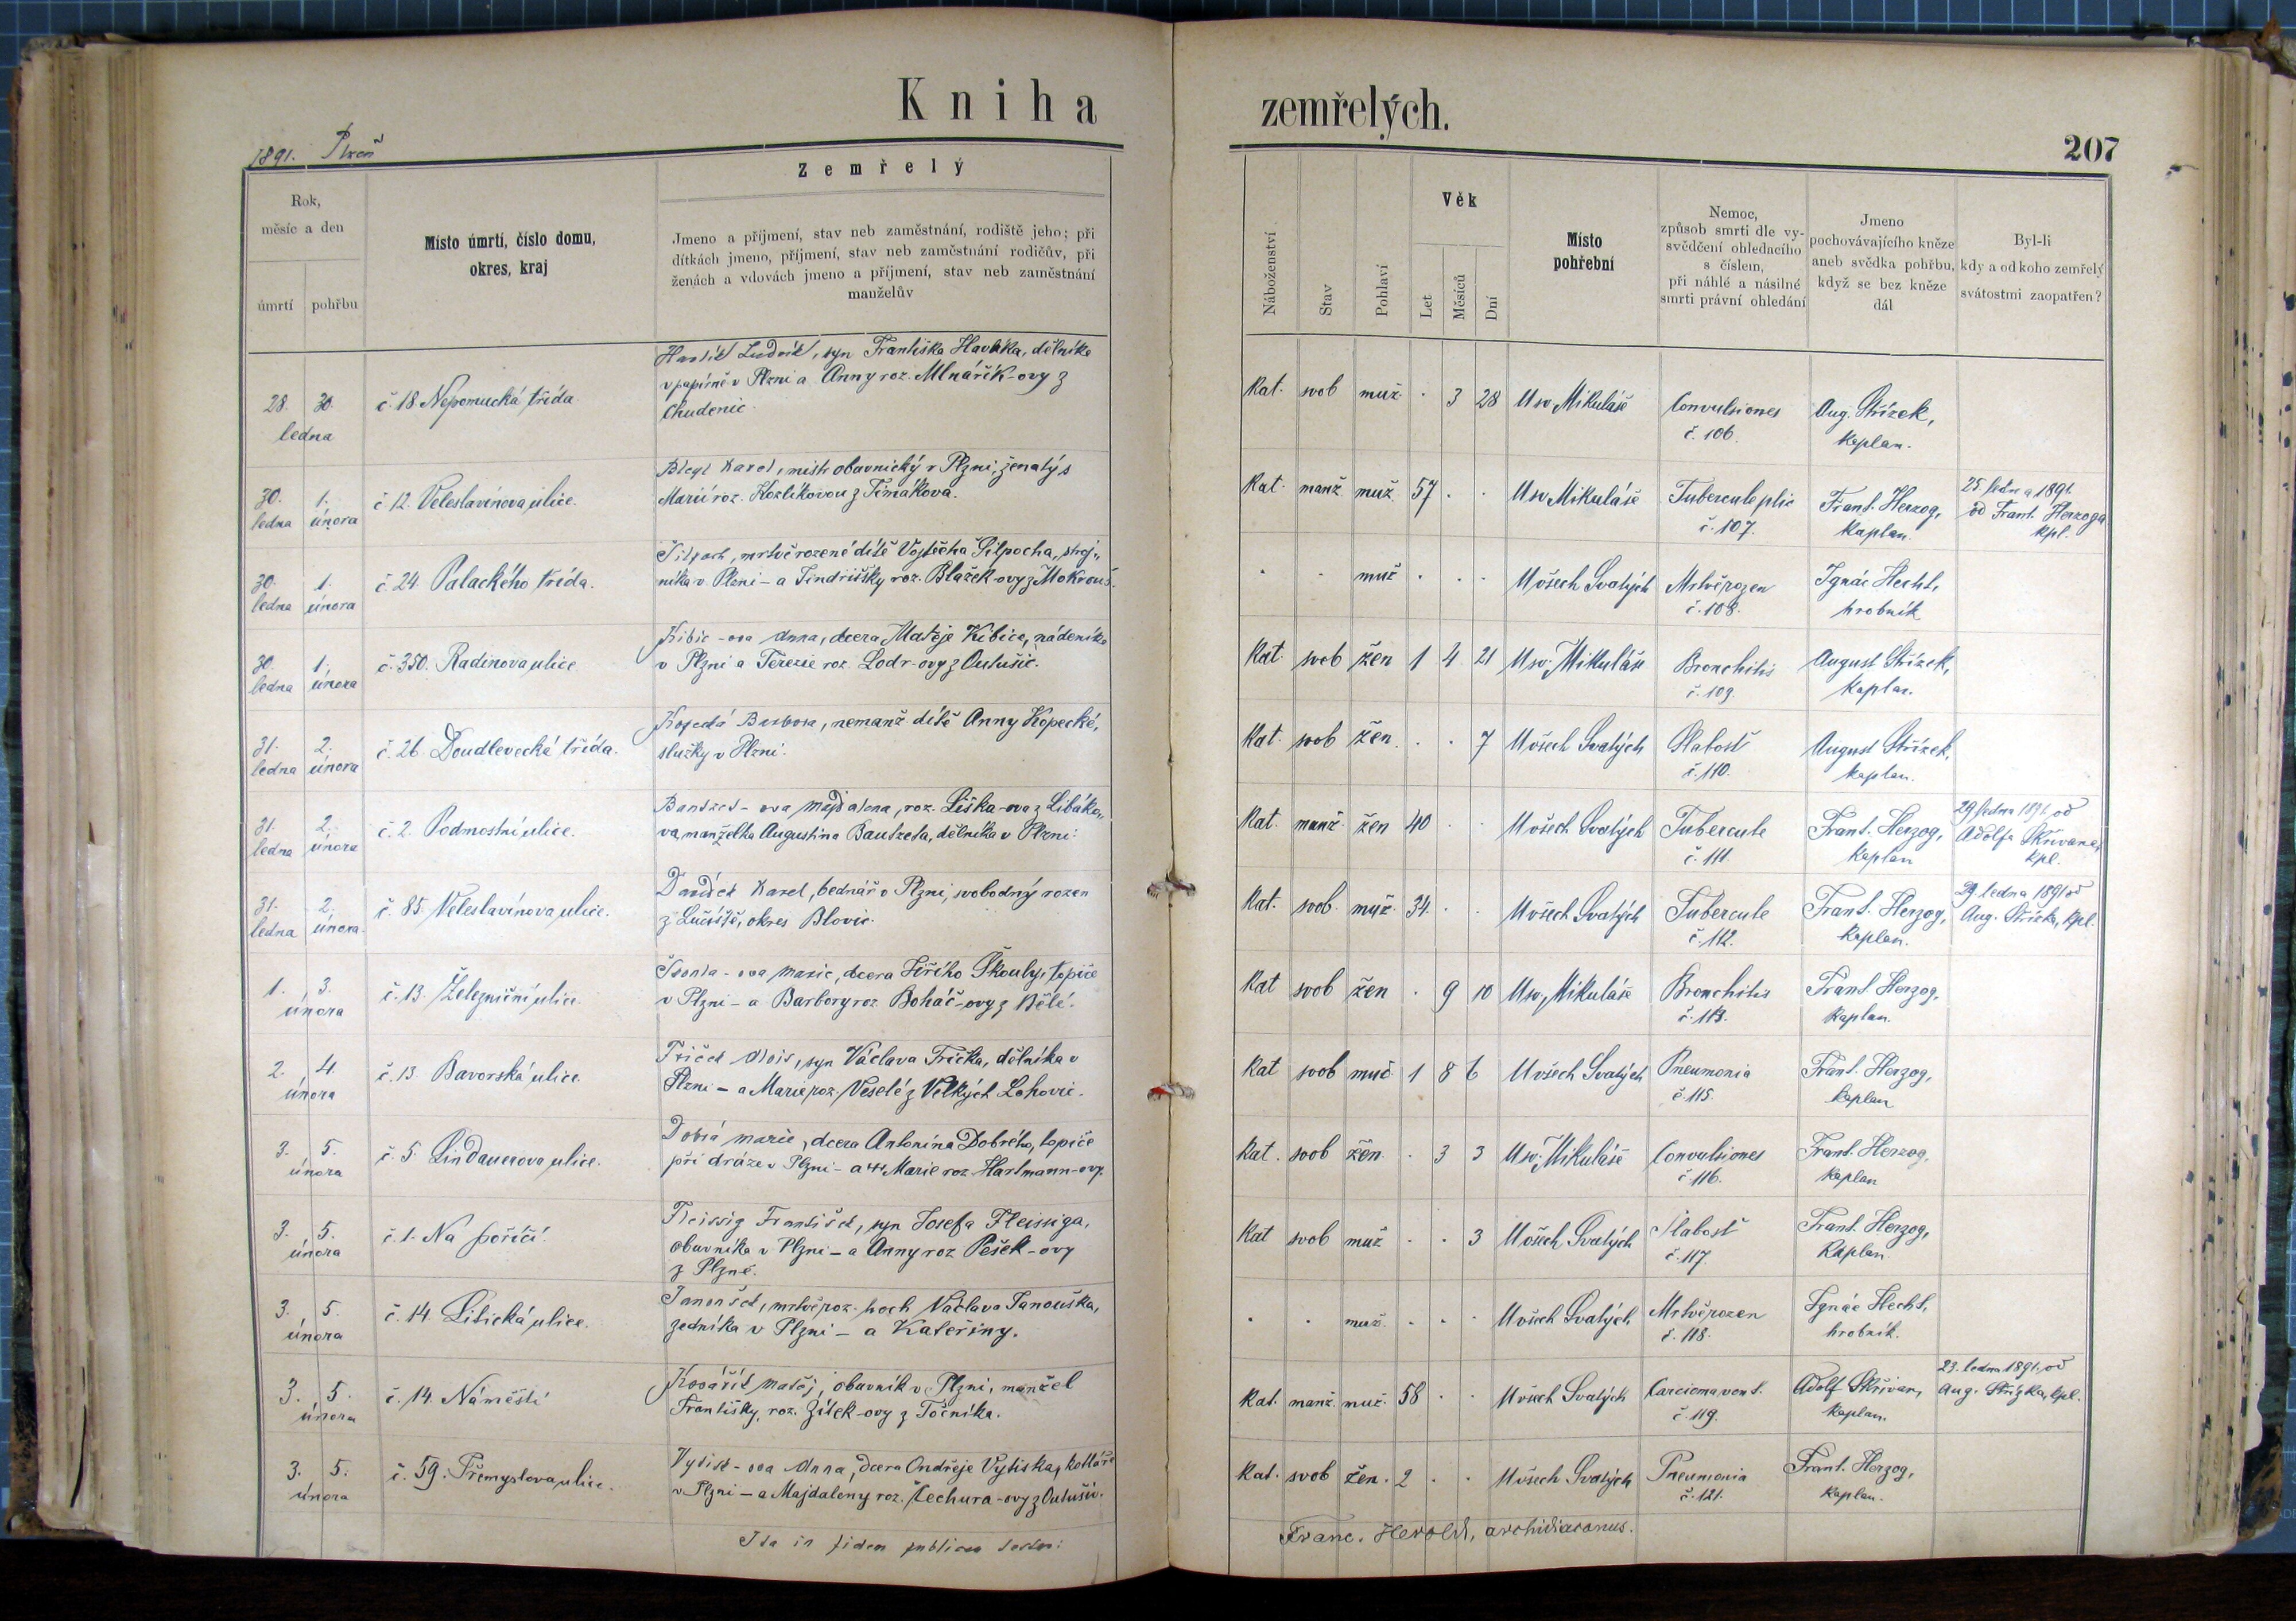 Kniha zemřelých.
1891. Plzeň
207
Zemřelý
Rok,
měsíc a den
úmrtí
pohřbu
Místo úmrtí, číslo domu,
okres, kraj
Jmeno a příjmení, stav neb zaměstnání, rodiště jeho; při
dítkách jmeno, příjmení, stav neb zaměstnání rodičův, při
ženách a vdovách jmeno a příjmení, stav neb zaměstnání
manželův
Náboženství
Stav
Pohlaví
Věk
Let
Měsíců
Dní
Místo
pohřební
Nemoc,
způsob smrti dle vy-
svědčení ohledacího
s číslem,
při náhlé a násilné
smrti právní ohledání
Jmeno
pochovávajícího kněze
aneb svědka pohřbu,
když se bez kněze
dál
Byl-li
kdy a od koho zemřelý
svátostmi zaopatřen?
28. 30. ledna
č. 18. Nepomucká třída
Ludvík, syn Františka Havlíka, dělníka
v papírně v Plzni a Anny roz. Mlnářík-ovy z
Chudenic
Kat. svob muž. . 3 28 U sv. Mikuláše
Convulsiones
č. 106.
Aug. Střízek,
kaplan.
30. ledna 1. února
č. 12. Veleslavínova ulice.
Karel, mistr obuvnický v Plzni, ženatý s
Marií roz. Kozlíkovou z Timákova.
Kat. manž muž. 57 . . U sv. Mikuláše
Tubercule plic
č. 107.
Frant. Herzog,
kaplan.
25. ledna 1891.
od Frant. Herzoga
kpl.
30. ledna 1. února
č. 24. Palackého třída.
mrtvě rozené dítě Vojtěcha Šilpocha, stroj„
níka v Plzni – a Jindřišky roz. Blažek-ovy z Mokrouš.
. . muž . . . U všech Svatých
Mrtvěrozen
č. 108.
Ignác Hecht,
hrobník
30. ledna 1. února
č. 350. Radinova ulice
Kibic-ova Anna, dcera Matěje Kibice, nádeníka
v Plzni a Terezie roz. Lodr-ovy z Outušic.
Kat. svob žen 1 4 21 U sv. Mikuláše
Bronchitis
č. 109.
August Střízek,
kaplan.
31. ledna 2. února
č. 26. Doudlevecká třída.
Barbora, nemanž dítě Anny Kopecké,
služky v Plzni.
Kat. svob žen. . . 7 U všech Svatých
Slabost
č. 110.
August Střízek,
kaplan.
31. ledna 2. února
č. 2. Podmostní ulice.
-ova Majdalena, roz. Liška-ova z Libáko„
va, manželka Augustina Bautzeta, dělníka v Plzni.
Kat. manž. žen 40 . . U všech Svatých
Tubercule
č. 111.
Frant. Herzog,
kaplan
29. ledna 1891. od
Adolfa Skřivana,
kpl.
31. ledna 2. února.
č. 85. Veleslavínova ulice.
Karel, bednář v Plzni, svobodný rozen
z Lučiště, okres Blovic.
Kat. svob. muž. 34. . . U všech Svatých
Tubercule
č. 112.
Frant. Herzog,
kaplan.
29. ledna 1891 od
Aug. Střízka, kpl.
1. 3. února
č. 13. Železniční ulice
-ova Marie, dcera Jiřího Škouly, topiče
v Plzni – a Barbory roz Boháč-ovy z Bělé.
Kat svob žen . 9 10 U sv. Mikuláše
Bronchitis
č. 113.
Frant Herzog,
kaplan.
2. 4. února
č. 13. Bavorská ulice.
Alois, syn Václava Tříčka, dělníka v
Plzni – a Marie roz. Veselé z Velkých Lohovic.
Kat svob muž 1 8 6 U všech Svatých
Pneumonia
č. 115.
Frant. Herzog,
kaplan
3. 5. února
č. 5. Lindauerova ulice.
Dobrá Marie, dcera Antonína Dobrého, topiče
při dráze v Plzni – a Marie roz Hartmann-ovy.
Kat. svob žen . 3 3 U sv. Mikuláše
Convulsiones
č. 116.
Frant. Herzog,
kaplan
3. 5. února
č. 1. Na poříčí.
Fleissig František, syn Josefa Fleissiga,
obuvníka v Plzni – a Anny roz Pešek-ovy
z Plzně.
Kat svob muž . . 3 U všech Svatých
Slabost
č. 117.
Frant. Herzog,
kaplan.
3. 5. února
č. 14. Litická ulice.
Janoušek, mrtvě roz. hoch Václava Janouška,
zedníka v Plzni – a Kateřiny.
. . muž. . . . U všech Svatých
Mrtvěrozen
č. 118.
Ignác Hecht,
hrobník.
3. 5. února
č. 14. Náměstí
Kovářík Matěj, obuvník v Plzni, manžel
Františky, roz. Zítek-ovy z Točníka.
Kat. manž. muž. 58 . . U všech Svatých
č. 119.
Adolf Skřivan,
kaplan.
23. ledna 1891. od
Aug. Střízka, kpl.
3. 5. února
č. 59. Přemyslova ulice.
Vytisk-ova Anna, dcera Ondřeje Vytiska, kotláře
v Plzni – a Majdaleny roz. Čechura-ovy z Outušic.
Kat. svob žen. 2 . . U všech Svatých
Pneumonia
č. 121.
Frant. Herzog,
kaplan.
Ita in fidem publicam testor:
Franc. Herold, archidiaconus.